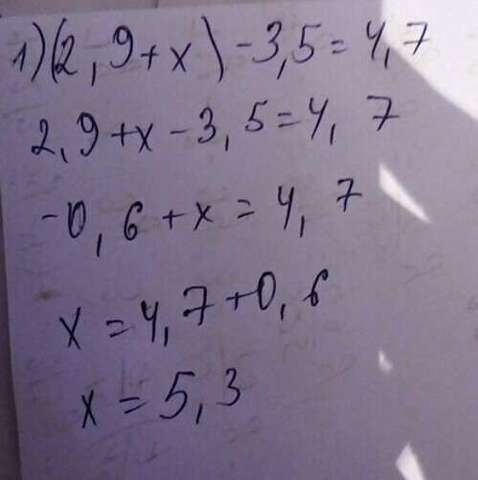 1) (2,9+x)-3,5=4,7
2,9+x-3,5=4,7
-0,6+x=4,7
x=4,7+0,6
x=5,3